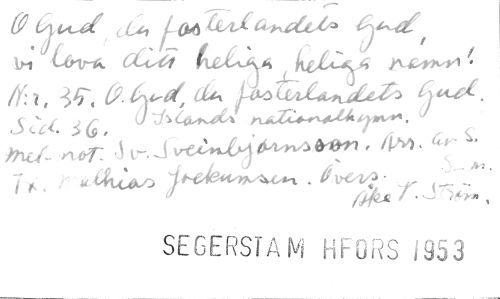 O Gud, du fosterlandets Gud,
vi lova ditt heliga, heliga namn!
N:r. 35. O. Gud, du fosterlandets Gud.
Sid. 36. Islands nationalhymn.
mel. not. Sv. Sveinbjörnsson. Arr. av S.
S-m.
Tx. Mathias Jockumsen. Övers.
Åke V. Ström.
SEGERSTAM HFORS 1953